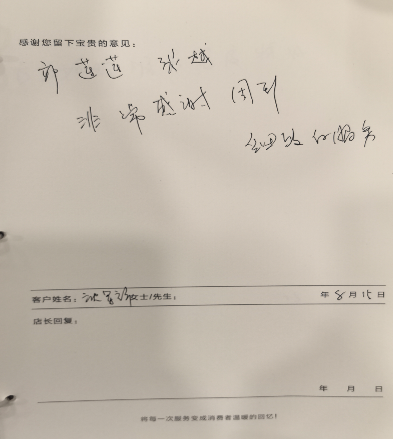 感谢您留下宝贵的意见：
郭莲莲 张越
非常感谢 周到
细致的服务
客户姓名： 女士/先生： 年 8 月 15 日
店长回复：
年 月 日
将每一次服务变成消费者温暖的回忆！